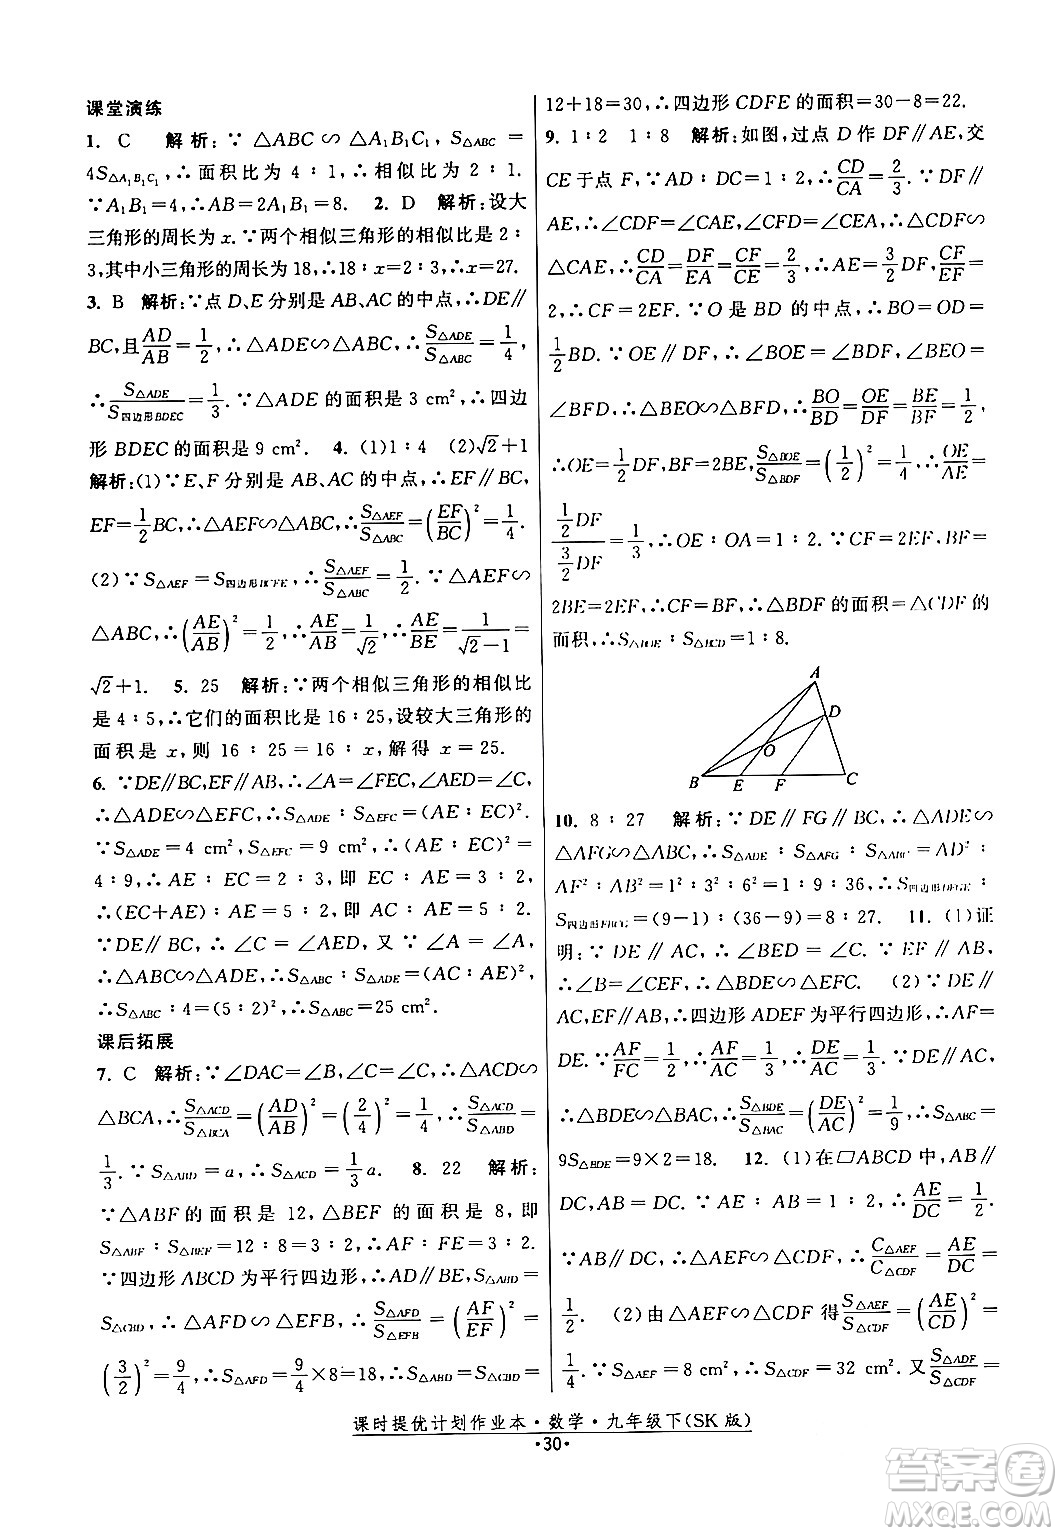 课堂演练
1. C 解析:∵△ABC∽△A₁B₁C₁,S△ABC=
4S△A₁B₁C₁,∴面积比为4∶1,∴相似比为2∶1.
∵A₁B₁=4,∴AB=2A₁B₁=8. 2. D 解析:设大
三角形的周长为x.∵两个相似三角形的相似比是2∶
3,其中小三角形的周长为18,∴18∶x=2∶3,∴x=27.
3. B 解析:∵点D、E分别是AB、AC的中点,∴DE∥
BC,且AD/AB=1/2,∴△ADE∽△ABC,∴S△ADE/S△ABC=1/4,
∴S△ADE/S四边形BDEC=1/3.∵△ADE的面积是3 cm²,∴四边
形BDEC的面积是9 cm². 4. (1)1∶4 (2)√2+1
解析:(1)∵E、F分别是AB、AC的中点,∴EF∥BC,
EF=1/2BC,∴△AEF∽△ABC,∴S△AEF/S△ABC=(EF/BC)²=1/4.
(2)∵S△AEF=S四边形BCFE,∴S△AEF/S△ABC=1/2.∵△AEF∽
△ABC,∴(AE/AB)²=1/2,∴AE/AB=1/√2,∴AE/BE=1/(√2-1)=
√2+1. 5. 25 解析:∵两个相似三角形的相似比
是4∶5,∴它们的面积比是16∶25,设较大三角形的
面积是x,则16∶25=16∶x,解得x=25.
6. ∵DE∥BC,EF∥AB,∴∠A=∠FEC,∠AED=∠C,
∴△ADE∽△EFC,∴S△ADE∶S△EFC=(AE∶EC)².
∵S△ADE=4 cm²,S△EFC=9 cm²,∴(AE∶EC)²=
4∶9,∴AE∶EC=2∶3,即EC∶AE=3∶2,
∴(EC+AE)∶AE=5∶2,即AC∶AE=5∶2.
∵DE∥BC,∴∠C=∠AED,又∵∠A=∠A,
∴△ABC∽△ADE,∴S△ABC∶S△ADE=(AC∶AE)²,
∴S△ABC∶4=(5∶2)²,∴S△ABC=25 cm².
课后拓展
7. C 解析:∵∠DAC=∠B,∠C=∠C,∴△ACD∽
△BCA,∴S△ACD/S△BCA=(AD/AB)²=(2/4)²=1/4,∴S△ACD/S△ABD=
1/3.∵S△ABD=a,∴S△ACD=1/3a. 8. 22 解析:
∵△ABF的面积是12,△BEF的面积是8,即
S△ABF∶S△BEF=12∶8=3∶2,∴AF∶FE=3∶2.
∵四边形ABCD为平行四边形,∴AD∥BE,S△ABD=
S△CBD,∴△AFD∽△EFB,∴S△AFD/S△EFB=(AF/EF)²=
(3/2)²=9/4,∴S△AFD=9/4×8=18,∴S△ABD=S△CBD=
12+18=30,∴四边形CDFE的面积=30-8=22.
9. 1∶2 1∶8 解析:如图,过点D作DF∥AE,交
CE于点F,∵AD∶DC=1∶2,∴CD/CA=2/3.∵DF∥
AE,∴∠CDF=∠CAE,∠CFD=∠CEA,∴△CDF∽
△CAE,∴CD/CA=DF/EA=CF/CE=2/3,∴AE=3/2DF,CF/EF=
2,∴CF=2EF.∵O是BD的中点,∴BO=OD=
1/2BD.∵OE∥DF,∴∠BOE=∠BDF,∠BEO=
∠BFD,∴△BEO∽△BFD,∴BO/BD=OE/DF=BE/BF=1/2,
∴OE=1/2DF,BF=2BE,S△BOE/S△BDF=(1/2)²=1/4,∴OE/AE=
(1/2DF)/(3/2DF)=1/3,∴OE∶OA=1∶2.∵CF=2EF,BF=
2BE=2EF,∴CF=BF,∴△BDF的面积=△CDF的
面积,∴S△BOE∶S△BCD=1∶8.
A
D
O
B E F C
10. 8∶27 解析:∵DE∥FG∥BC,∴△ADE∽
△AFG∽△ABC,∴S△ADE∶S△AFG∶S△ABC=AD²∶
AF²∶AB²=1²∶3²∶6²=1∶9∶36,∴S四边形DFGE∶
S四边形FBCG=(9-1)∶(36-9)=8∶27. 11. (1)证
明:∵DE∥AC,∴∠BED=∠C.∵EF∥AB,
∴∠B=∠CEF,∴△BDE∽△EFC. (2)∵EF∥
AB,DE∥AC,∴四边形ADEF为平行四边形,∴AF=
DE.∵AF/FC=1/2,∴AF/AC=1/3,∴DE/AC=1/3.∵DE∥AC,
∴△BDE∽△BAC,∴S△BDE/S△BAC=(DE/AC)²=1/9,∴S△ABC=
9S△BDE=9×2=18. 12. (1)在▱ABCD中,AB∥
DC,AB=DC.∵AE∶AB=1∶2,∴AE/DC=1/2.
∵AB∥DC,∴△AEF∽△CDF,∴C△AEF/C△CDF=AE/DC=
1/2. (2)由△AEF∽△CDF得S△AEF/S△CDF=(AE/CD)²=
1/4.∵S△AEF=8 cm²,∴S△CDF=32 cm².又S△ADF/S△CDF=
课时提优计划作业本·数学·九年级下(SK版)
·30·
答案圈
MXQE.COM